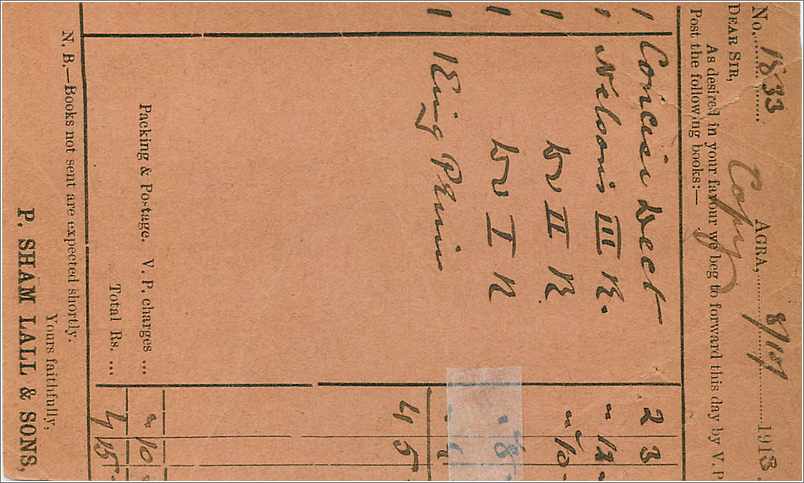 No. 1833 AGRA, 8/10/ 1913
Copy
DEAR SIR,
As desired in your favour we beg to forward this day by V. P.
Post the following books:—
1 Concise Dect 2 3
1 Nelsons III R. " 12 "
1 Do II R. " 10 "
1 Do I R " 8 "
1 King Prim
4 5
Packing & Postage. V. P. charges ... " 10
Total Rs. ... 4 15
N. B.—Books not sent are expected shortly.
Yours faithfully,
P. SHAM LALL & SONS,